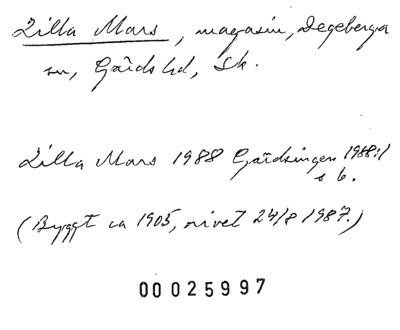 Lilla Mars, magasin, Degeberga
sn, Gärds hd, Sk.
Lilla Mars 1988 Gärdsingen 1988:1
s 6.
(Byggt ca 1905, rivet 24/8 1987.)
00025997